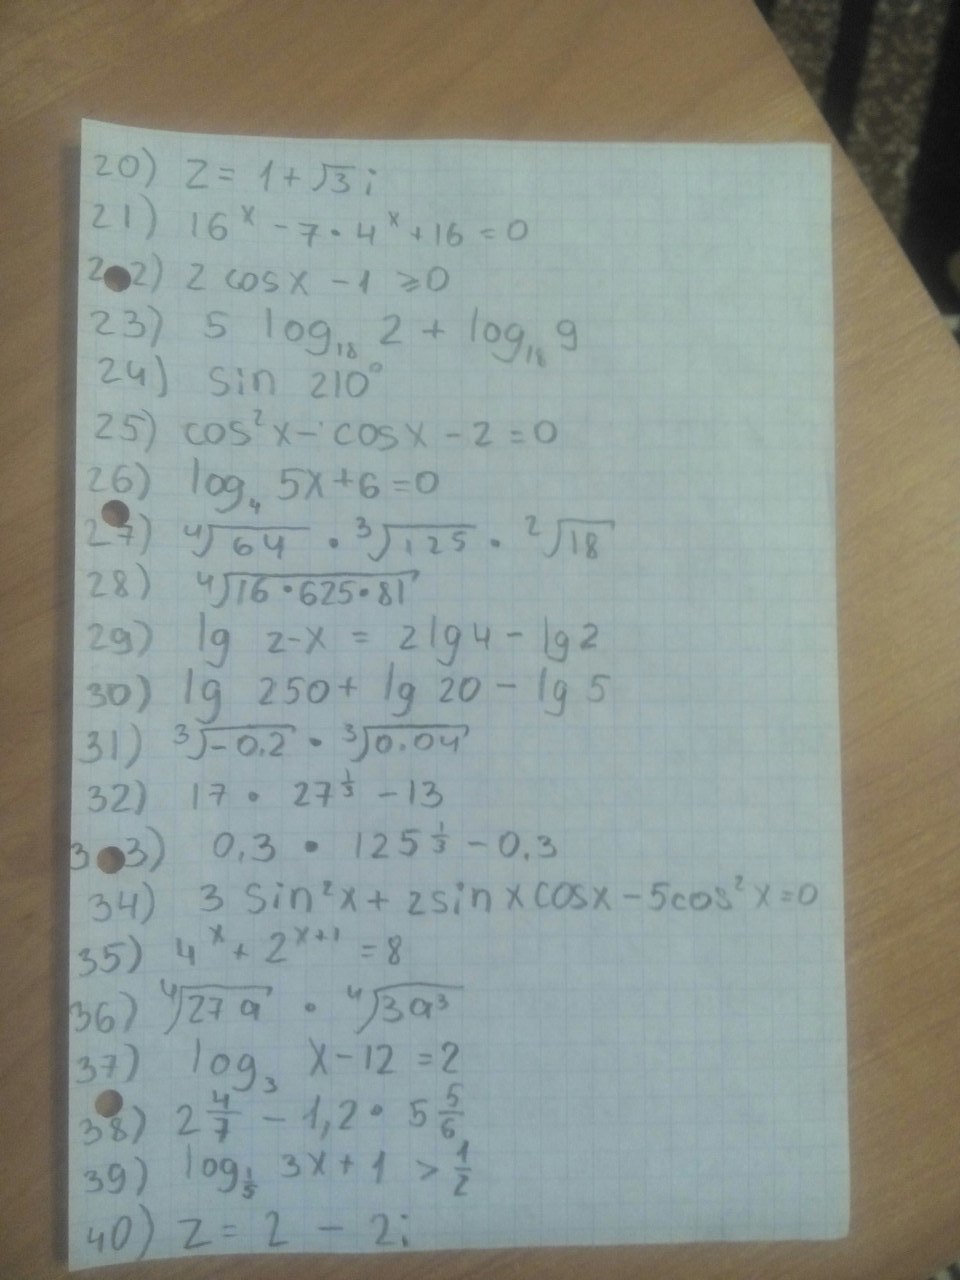 20) z = 1 + √3 i
21) 16^x - 7 · 4^x + 16 = 0
22) 2 cos x - 1 ≥ 0
23) 5 log₁₈ 2 + log₁₈ 9
24) sin 210°
25) cos²x - cos x - 2 = 0
26) log₄ 5x + 6 = 0
27) ⁴√64 · ³√125 · ²√18
28) ⁴√16 · 625 · 81
29) lg 2-x = 2 lg 4 - lg 2
30) lg 250 + lg 20 - lg 5
31) ³√-0.2 · ³√0.04
32) 17 · 27^⅓ - 13
33) 0,3 · 125^⅓ - 0,3
34) 3 sin²x + 2 sin x cos x - 5 cos²x = 0
35) 4^x + 2^x+1 = 8
36) ⁴√27a · ⁴√3a³
37) log₃ x - 12 = 2
38) 2 4/7 - 1,2 · 5 5/6
39) log_1/5 3x + 1 > 1/2
40) z = 2 - 2i